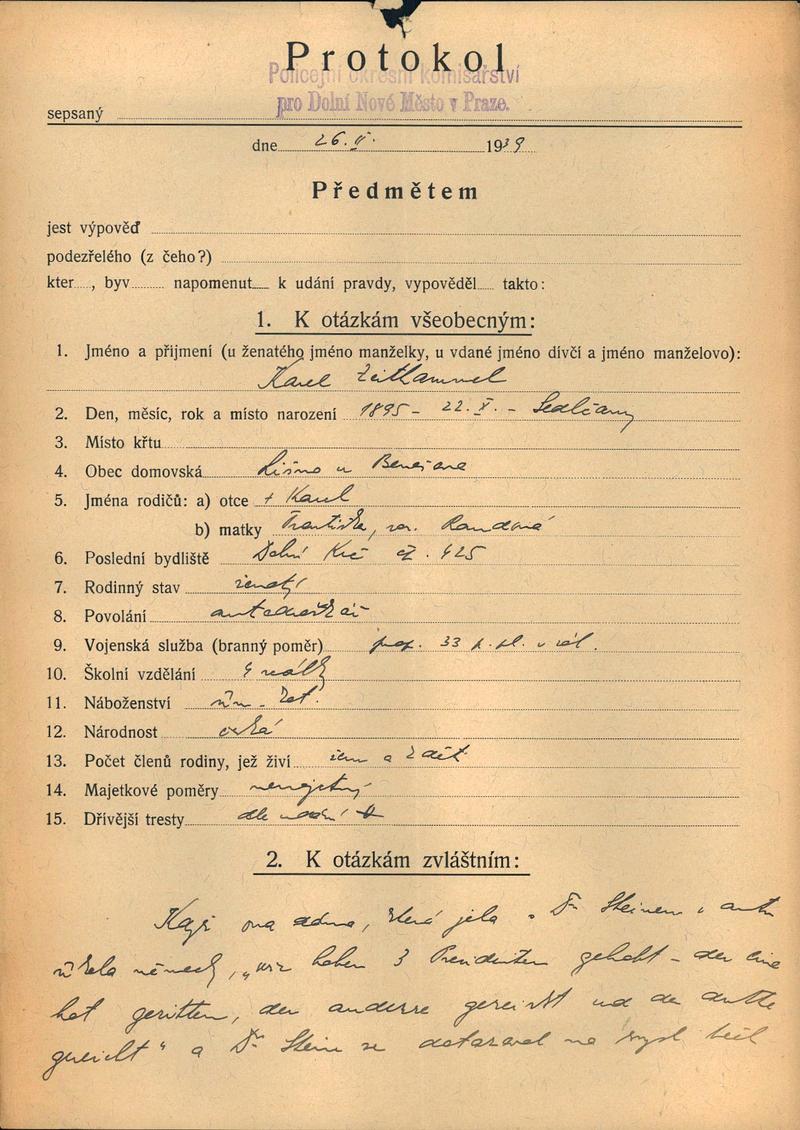 Protokol
Policejní okresní komisařství
pro Dolní Nové Město v Praze.
sepsaný
dne 26. V. 1939
Předmětem
jest výpověď
podezřelého (z čeho?)
kter....., byv.......... napomenut.... k udání pravdy, vypověděl..... takto:
1. K otázkám všeobecným:
1. Jméno a přijmení (u ženatého jméno manželky, u vdané jméno dívčí a jméno manželovo):
Karel Zeithammel
2. Den, měsíc, rok a místo narození 1895 - 22. X. - Sedlčany
3. Místo křtu
4. Obec domovská Líšno u Benešova
5. Jména rodičů: a) otce + Karel
b) matky Františka, roz. Randová
6. Poslední bydliště Dolní Krč čp. 425
7. Rodinný stav ženatý
8. Povolání autodrožkář
9. Vojenská služba (branný poměr) 33 p. pl. v zál.
10. Školní vzdělání 4 reálky
11. Náboženství řím. kat.
12. Národnost česká
13. Počet členů rodiny, jež živí ženu a 2 děti
14. Majetkové poměry nemajetný
15. Dřívější tresty dle udání
2. K otázkám zvláštním:
Když ona dáma, která jela s Dr Steinem v autu
řekla německy, „wir haben 3 Presidenten gehabt - der eine
hat geritten, der andere gereist und der dritte
" a Dr Stein se dotazoval na smysl